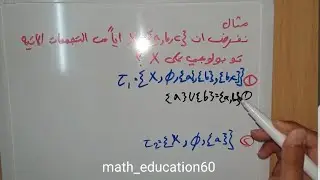 مثال
نفرض ان X={a,b,c} اياً من التجمعات الاتية
تو بولوجي على X ؟
① τ₁={X,φ,{a},{b},{b,c}}
{a}∪{b}={a,b}
τ₂={X,φ,{a}}
math_education60